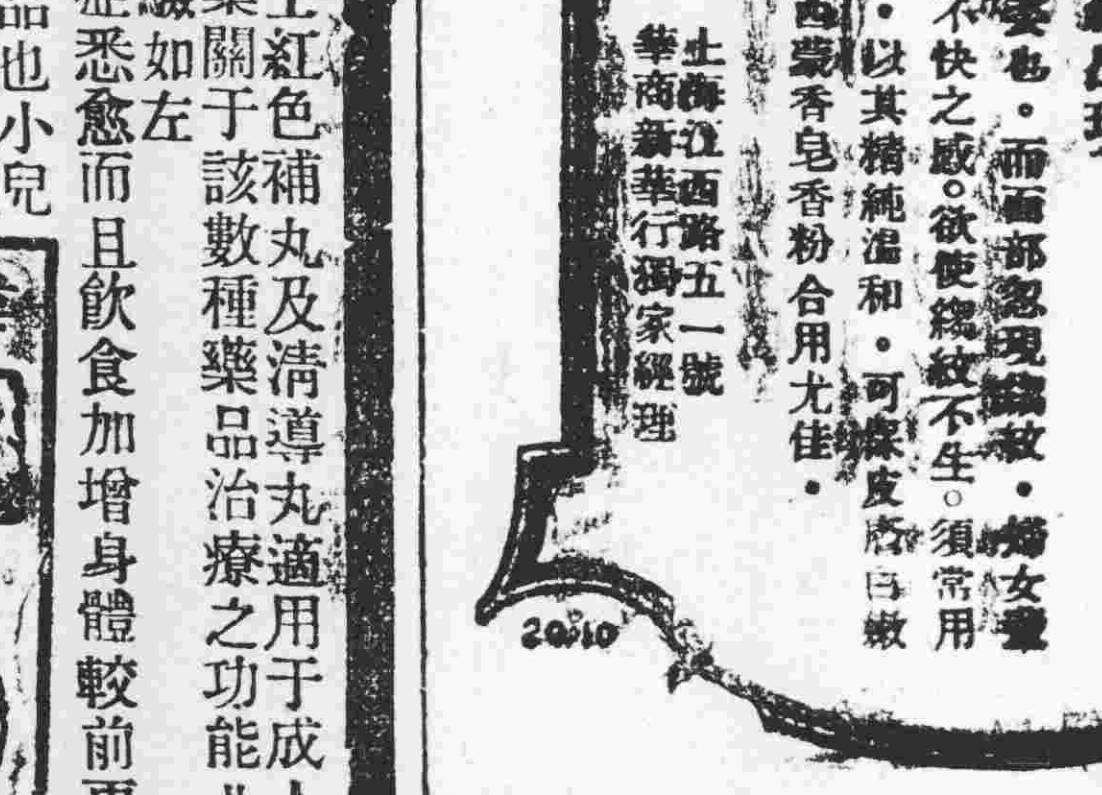 也・而面部忽現縐紋・婦女
不快之感。欲使縐紋不生。須常用
・以其精純温和・可保皮膚白嫩
西蒙香皂香粉合用尤佳・
上海江西路五一號
華商新華行獨家經理
20.10
紅色補丸及淸導丸適用于成
藥關于該數種藥品治療之功能
驗如左
症悉愈而且飮食加增身體較前更
品也小兒